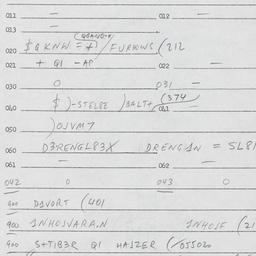 011 — 012 —
013
020 $ Q KNW = / FURKWS ( 212
021 + QI - AP 022 —
030 0 031 —
040 $ )-STELBE )BALT+ 041 (374
050 )OJVM7
060 D3RENGL83X DRENG1N = SL81
061 — 062 —
042 0 043 0
900 D1VORT (401
900 1NHOJVARA.N 1NHOJE (21
900 S+TIB3R QI HAJZER (/055020